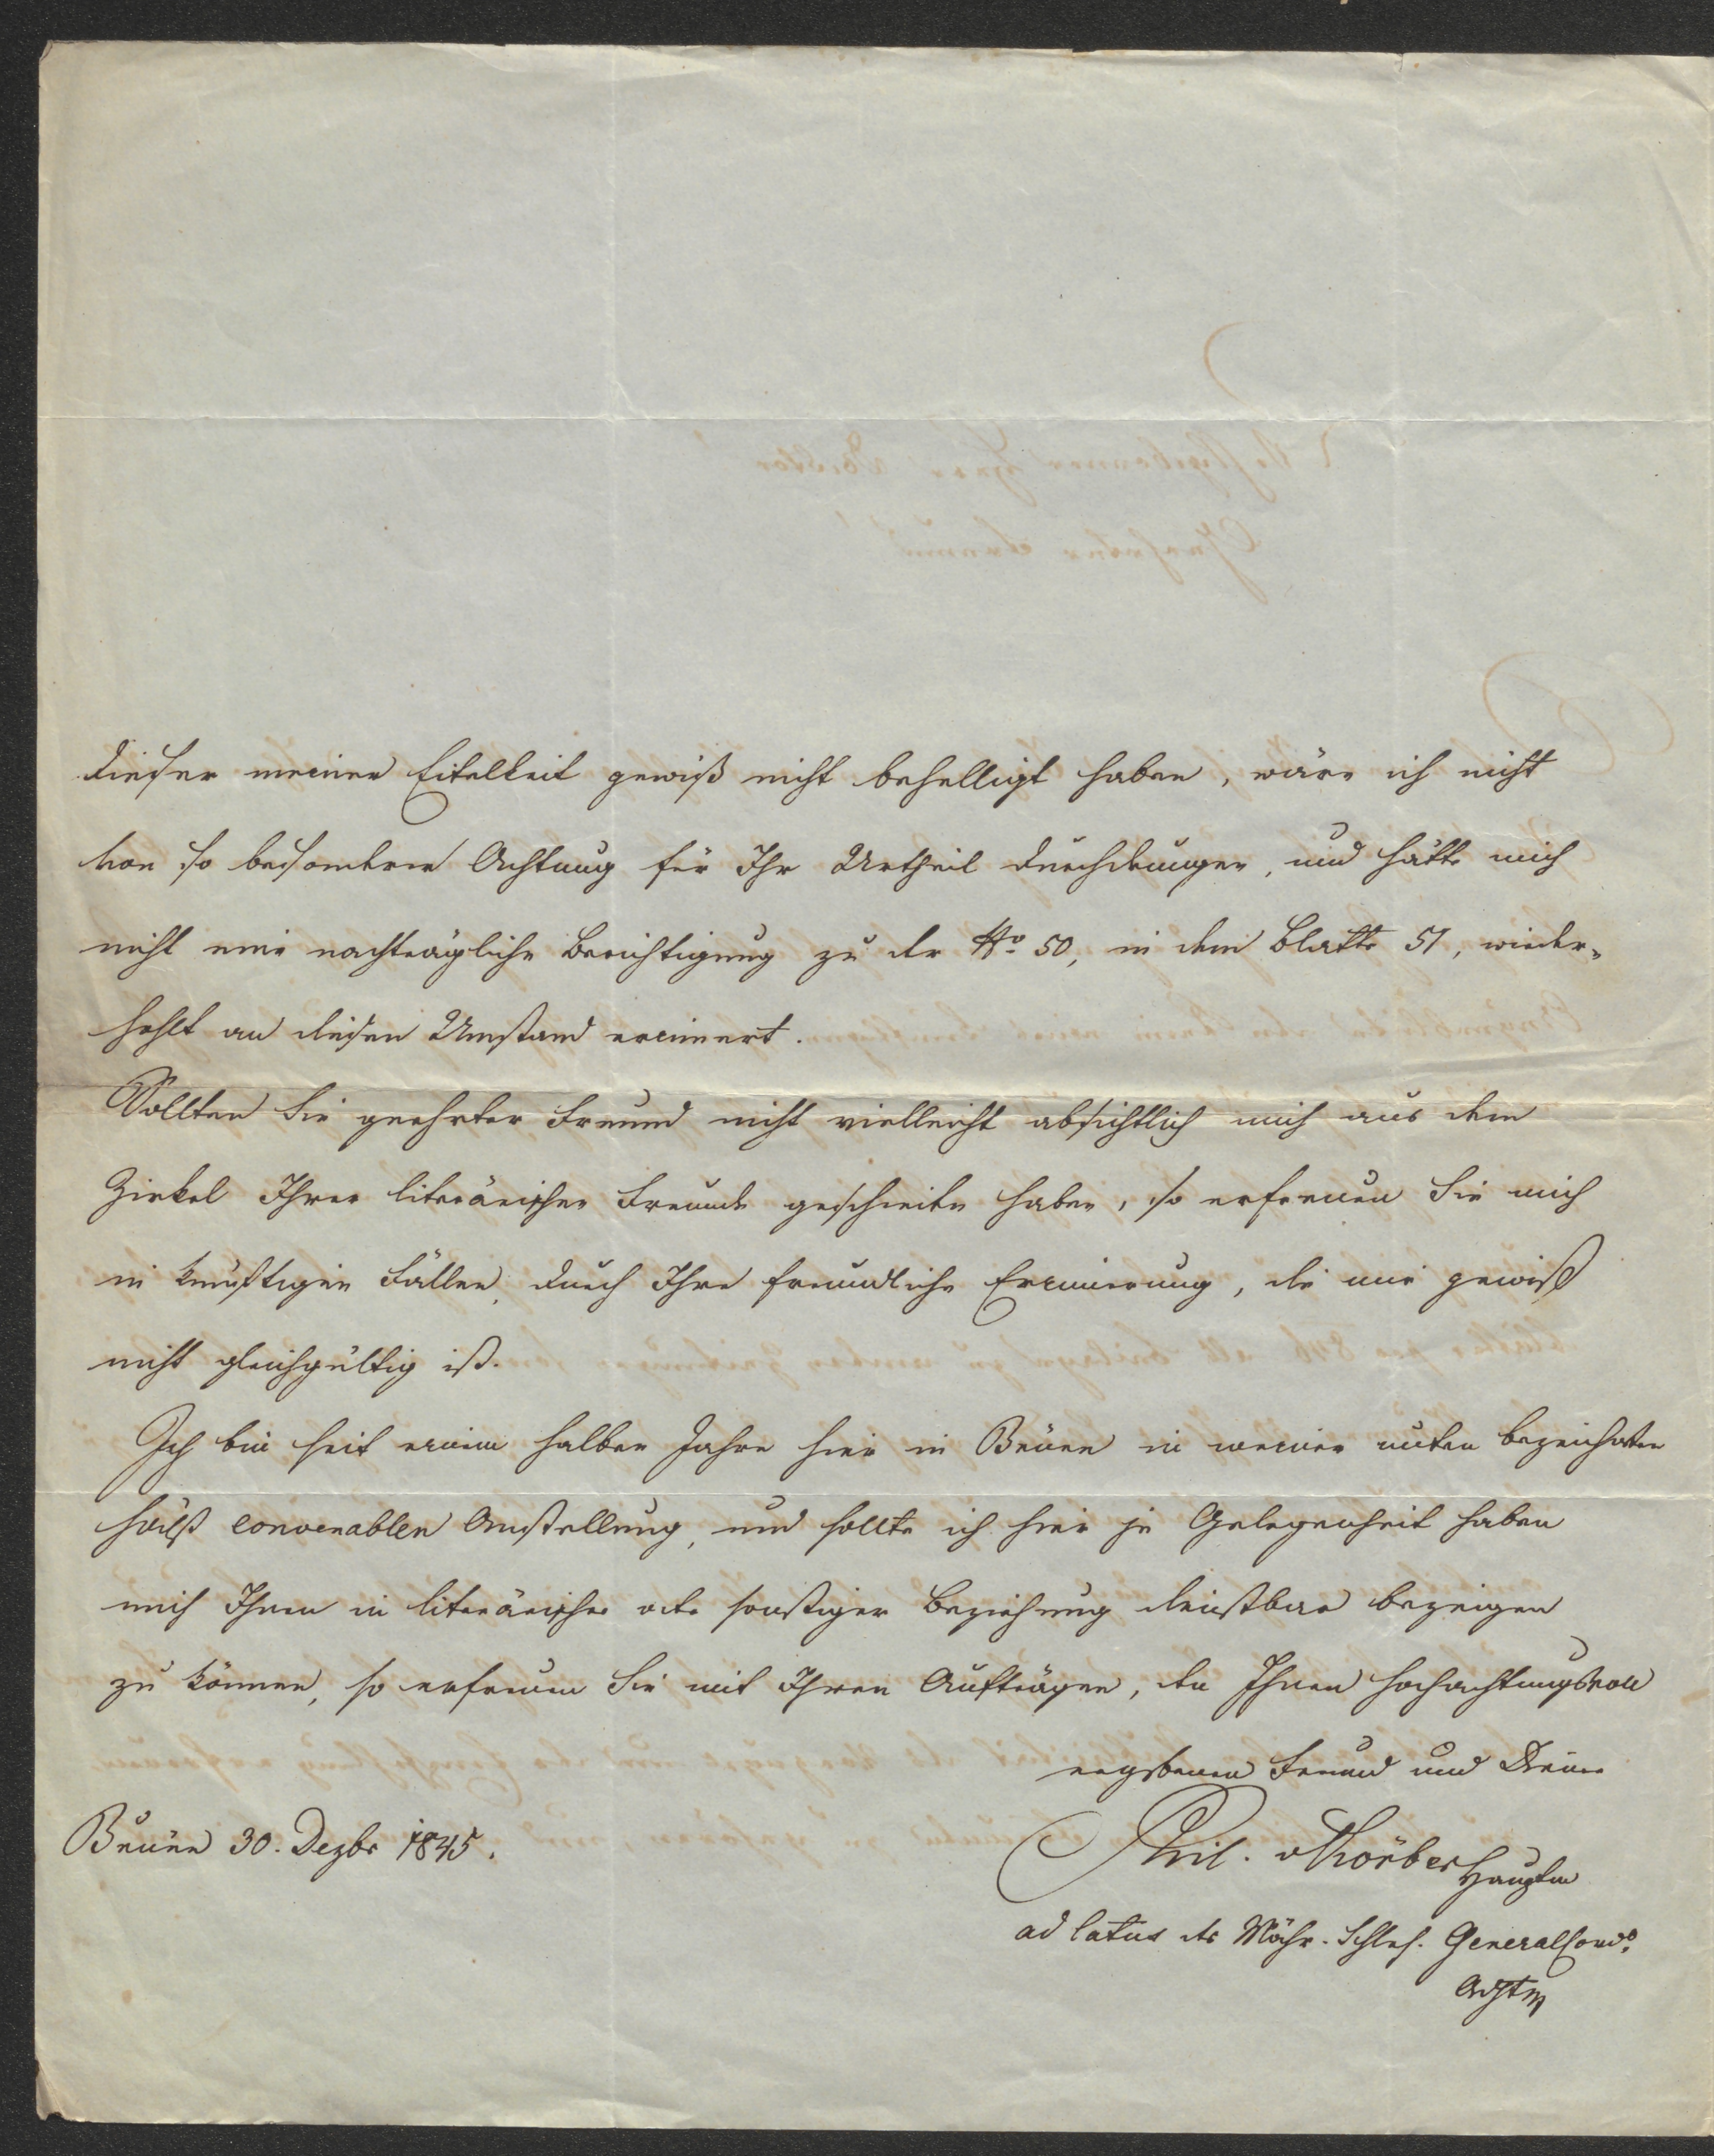 dieser meiner Eitelkeit gewiß nicht behelligt haben, wäre ich nicht
von so besonderer Achtung für Ihr Urtheil durchdrungen, und hätte mich
nicht eine nachträgliche Berichtigung zu der No 50, in dem Blatte 51, wieder„
hohlt an diesen Umstand erinnert.
Sollten Sie geehrter Freund nicht vielleicht absichtlich mich aus dem
Zirkel Ihrer literärischen Freunde geschieden haben, so erfreuen Sie mich
in künftigen Fällen, durch Ihre freundliche Erinnerung, die mir gewiß
nicht gleichgültig ist.
Ich bin seit einem halben Jahre hier in Brünn in meiner unten bezeichneten
höchst convenablen Anstellung, und sollte ich hier je Gelegenheit haben
mich Ihnen in literärischer oder sonstiger Beziehung dienstbar bezeigen
zu können, so erfreuen Sie mit Ihren Aufträgen, den Ihnen hochachtungsvoll
ergebenen Freund und Diener
Phil. v Körber Hauptm
Brünn 30. Dezbr 1845.
ad latus des Mähr. Schles. GeneralComdo
Adjtn